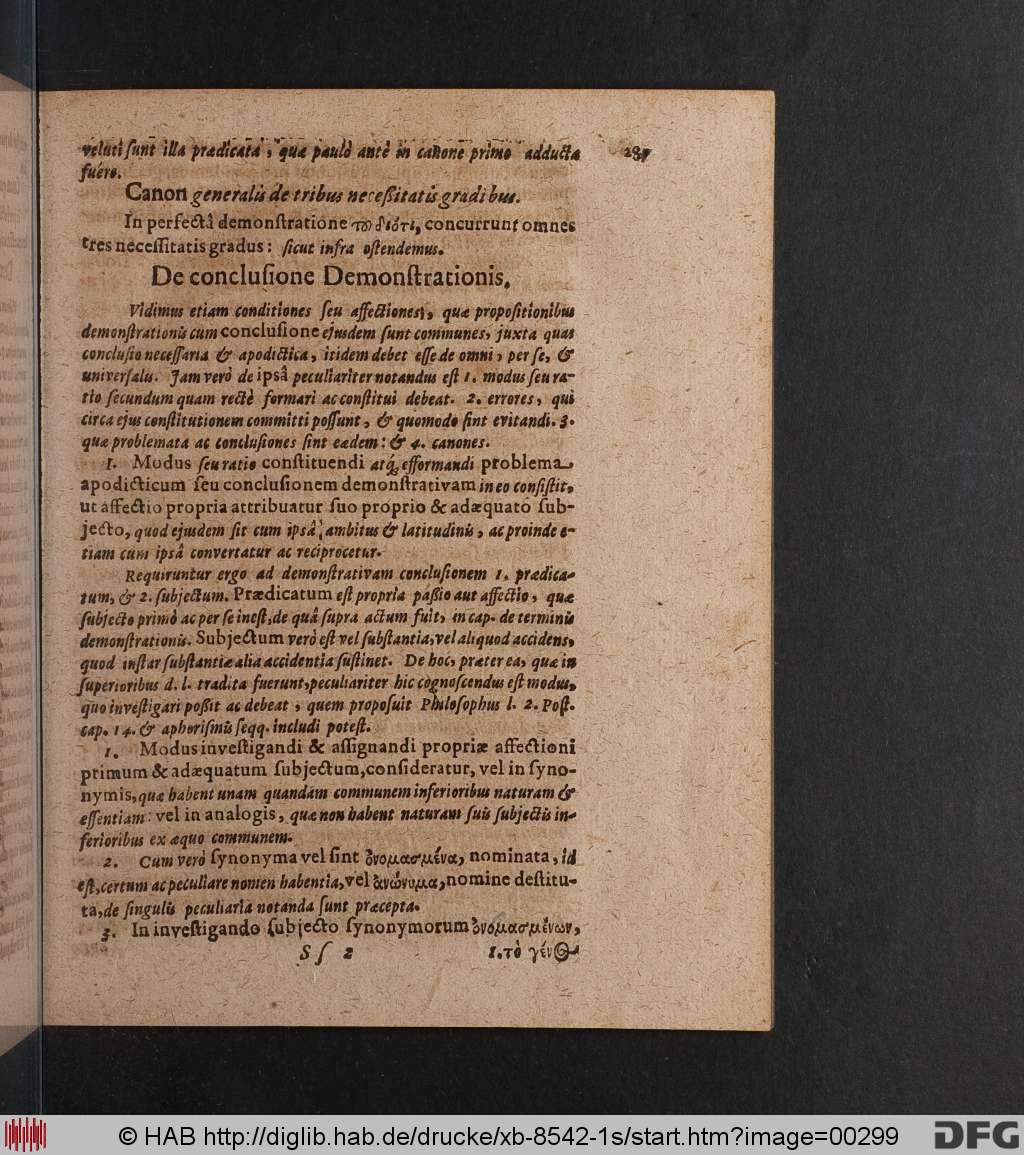 veluti ſunt illa prædicata, quæ paulò antè in canone primo adducta
fuére.
Canon generalis de tribus neceßitatis gradibus.
In perfectâ demonſtratione τȣ διότι, concurrunt omnes
tres neceſſitatis gradus: ſicut infra oſtendemus.
De concluſione Demonſtrationis.
Vidimus etiam conditiones ſeu affectiones, quæ propoſitionibus
demonſtrationis cum concluſione ejusdem ſunt communes, juxta quas
concluſio neceſſaria & apodictica, itidem debet eſſe de omni, per ſe, &
univerſalis. Jam verò de ipsâ peculiariter notandus eſt 1. modus ſeu ra-
tio ſecundum quam rectè formari ac conſtitui debeat. 2. errores, qui
circa ejus conſtitutionem committi poſſunt, & quomodo ſint evitandi. 3.
quæ problemata ac concluſiones ſint eædem: & 4. canones.
1. Modus ſeu ratio conſtituendi atq; efformandi problema
apodicticum ſeu concluſionem demonſtrativam in eo conſiſtit,
ut affectio propria attribuatur ſuo proprio & adæquato ſub-
jecto, quod ejusdem ſit cum ipsâ ambitus & latitudinis, ac proinde e-
tiam cum ipsâ convertatur ac reciprocetur.
Requiruntur ergo ad demonſtrativam concluſionem 1. prædica-
tum, & 2. ſubjectum. Prædicatum eſt propria paßio aut affectio, quæ
ſubjecto primò ac per ſe ineſt, de quâ ſupra actum fuit, in cap. de terminis
demonſtrationis. Subjectum verò eſt vel ſubſtantia, vel aliquod accidens,
quod inſtar ſubſtantiæ alia accidentia ſuſtinet. De hoc, præter ea, quæ in
ſuperioribus d. l. tradita fuerunt, peculiariter hic cognoſcendus eſt modus,
quo inveſtigari poßit ac debeat, quem propoſuit Philoſophus l. 2. Poſt.
cap. 14. & aphoriſmis ſeqq. includi poteſt.
1. Modus inveſtigandi & aſſignandi propriæ affectioni
primum & adæquatum ſubjectum, conſideratur, vel in ſyno-
nymis, quæ habent unam quandam communem inferioribus naturam &
eſſentiam: vel in analogis, quæ non habent naturam ſuis ſubjectis in-
ferioribus ex æquo communem.
2. Cum verò ſynonyma vel ſint ὀνομασμένα, nominata, id
eſt, certum ac peculiare nomen habentia, vel ἀνώνυμα, nomine deſtitu-
ta, de ſingulis peculiaria notanda ſunt præcepta.
3. In inveſtigando ſubjecto ſynonymorum ὀνομασμένων,
Sſ 2 1. τὸ γένος
© HAB http://diglib.hab.de/drucke/xb-8542-1s/start.htm?image=00299
DFG